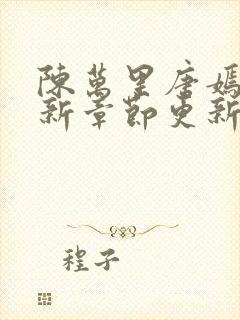 陳萬里唐嫣
新章節更新
程子